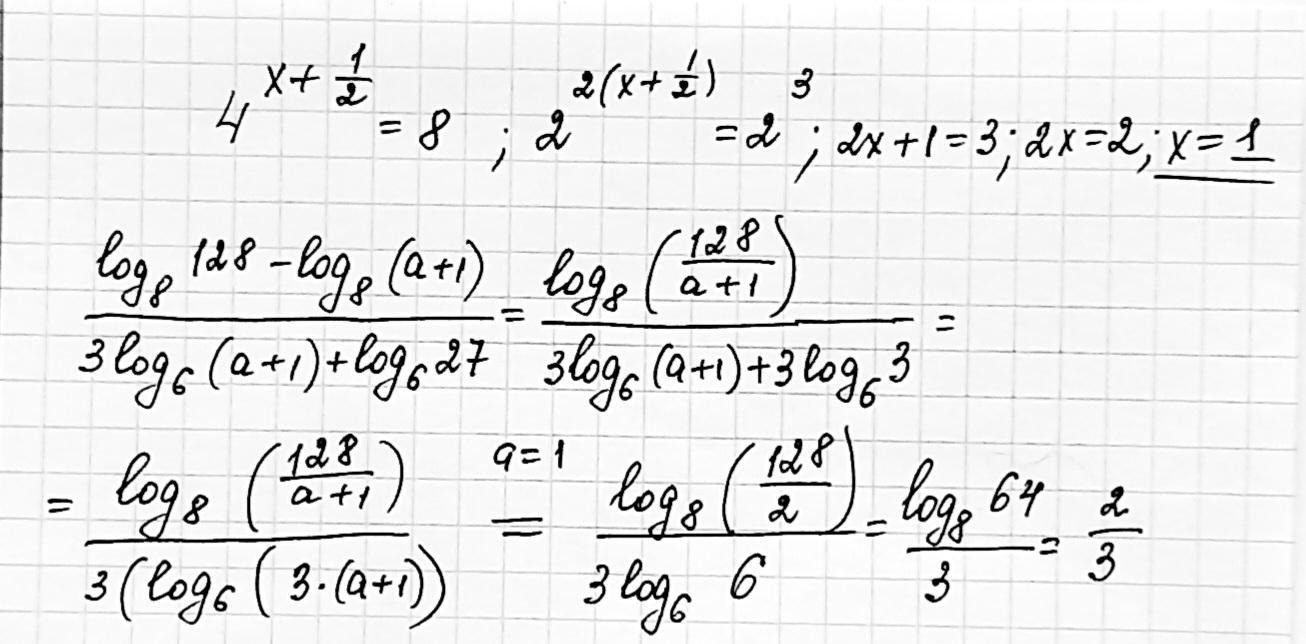 4^{x+\frac{1}{2}} = 8 ; 2^{2(x+\frac{1}{2})} = 2^3 ; 2x+1=3; 2x=2; x=1
\frac{\log_8 128 - \log_8 (a+1)}{3\log_6 (a+1) + \log_6 27} = \frac{\log_8 (\frac{128}{a+1})}{3\log_6 (a+1) + 3\log_6 3} =
= \frac{\log_8 (\frac{128}{a+1})}{3(\log_6 (3 \cdot (a+1))} \stackrel{a=1}{=} \frac{\log_8 (\frac{128}{2})}{3\log_6 6} = \frac{\log_8 64}{3} = \frac{2}{3}